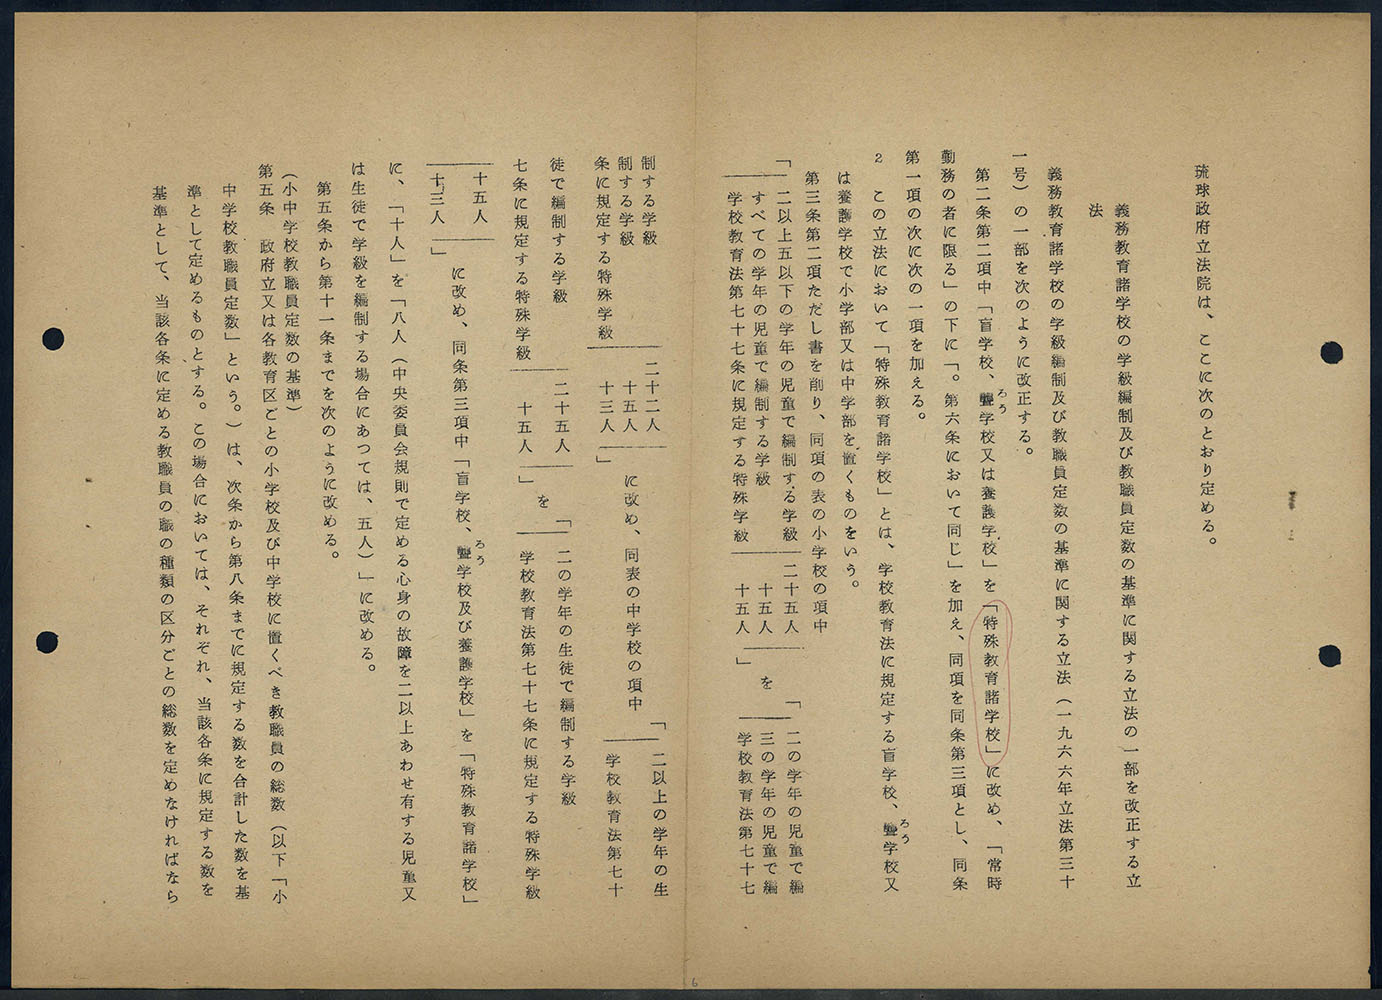 琉球政府立法院は、ここに次のとおり定める。
義務教育諸学校の学級編制及び教職員定数の基準に関する立法の一部を改正する立
法
義務教育諸学校の学級編制及び教職員定数の基準に関する立法(一九六六年立法第三十
一号)の一部を次のように改正する。
第二条第二項中「盲学校、聾学校又は養護学校」を「特殊教育諸学校」に改め、「常時
ろう
勤務の者に限る」の下に「。第六条において同じ」を加え、同項を同条第三項とし、同条
第一項の次に次の一項を加える。
2 この立法において「特殊教育諸学校」とは、学校教育法に規定する盲学校、聾学校又
ろう
は養護学校で小学部又は中学部を置くものをいう。
第三条第二項ただし書を削り、同項の表の小学校の項中
「二以上五以下の学年の児童で編制する学級 二十五人
すべての学年の児童で編制する学級 十五人
学校教育法第七十七条に規定する特殊学級 十五人」
を
「二の学年の児童で編
三の学年の児童で編
学校教育法第七十七
制する学級 二十二人
制する学級 十五人
条に規定する特殊学級 十三人」
に改め、同表の中学校の項中
「二以上の学年の生
学校教育法第七十
徒で編制する学級 二十五人
七条に規定する特殊学級 十五人」
を
「二の学年の生徒で編制する学級
学校教育法第七十七条に規定する特殊学級
十五人
十三人」
に改め、同条第三項中「盲学校、聾学校及び養護学校」を「特殊教育諸学校」
ろう
に、「十人」を「八人(中央委員会規則で定める心身の故障を二以上あわせ有する児童又
は生徒で学級を編制する場合にあつては、五人)」に改める。
第五条から第十一条までを次のように改める。
(小中学校教職員定数の基準)
第五条 政府立又は各教育区ごとの小学校及び中学校に置くべき教職員の総数(以下「小
中学校教職員定数」という。)は、次条から第八条までに規定する数を合計した数を基
準として定めるものとする。この場合においては、それぞれ、当該各条に規定する数を
基準として、当該各条に定める教職員の職の種類の区分ごとの総数を定めなければなら
6